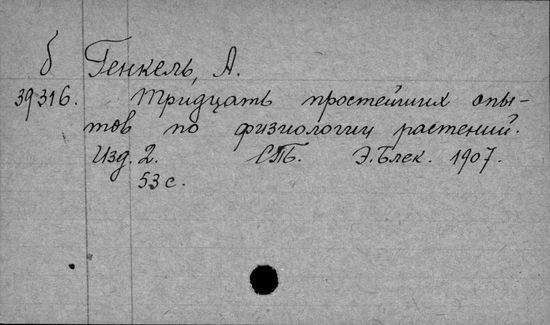 б Генкель, А.
39316. Тридцать простейших опы-
тов по физиологии растений.
Изд. 2. СПБ. Э. Блек. 1907.
53 с.